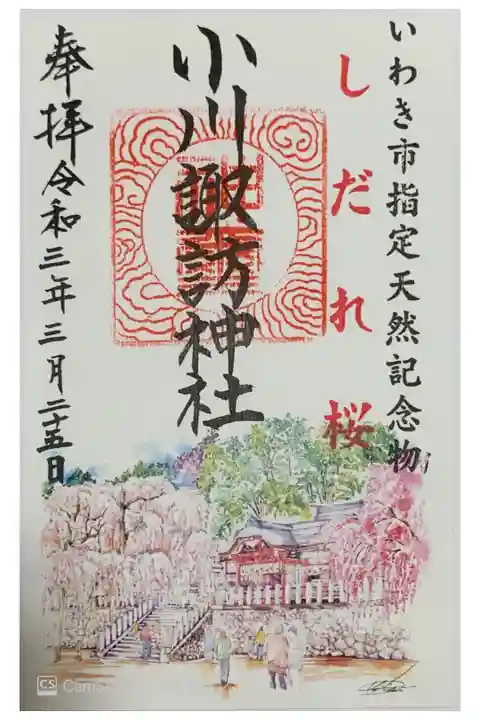 いわき市指定天然記念物
しだれ桜
小川諏訪神社
奉拝 令和三年三月二十五日
CS